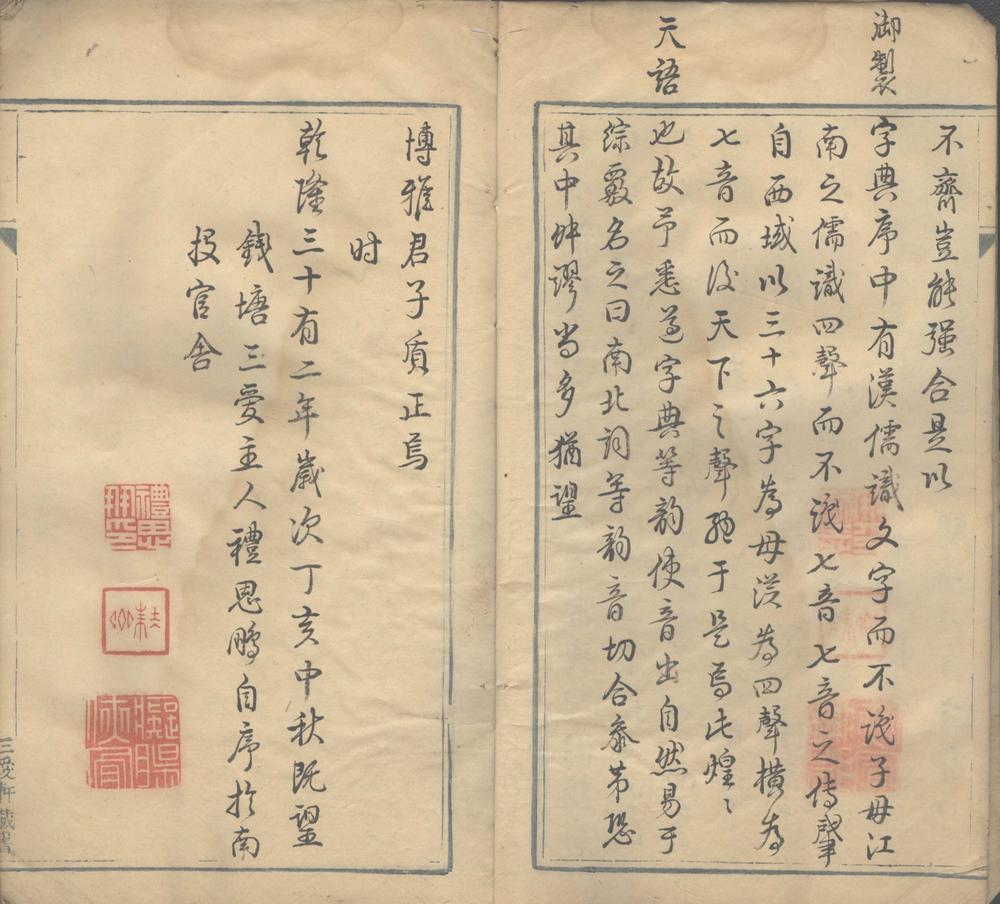 不齊豈能强合是以
御製
字典序中有漢儒識文字而不識子母江
南之儒識四聲而不識七音七音之傳肇
自西域以三十六字為母從為四聲橫為
七音而後天下之聲總于是焉此煌〻
天語
也故予悉遵字典等韵使音出自然易于
綜覈名之曰南北詞等韵音切合參苐恐
其中舛謬尚多猶望
博雅君子質正焉
时
乾隆三十有二年嵗次丁亥中秋既望
錢塘三愛主人禮思鵬自序於南
投官舍
禮思鵬印
三愛軒藏書